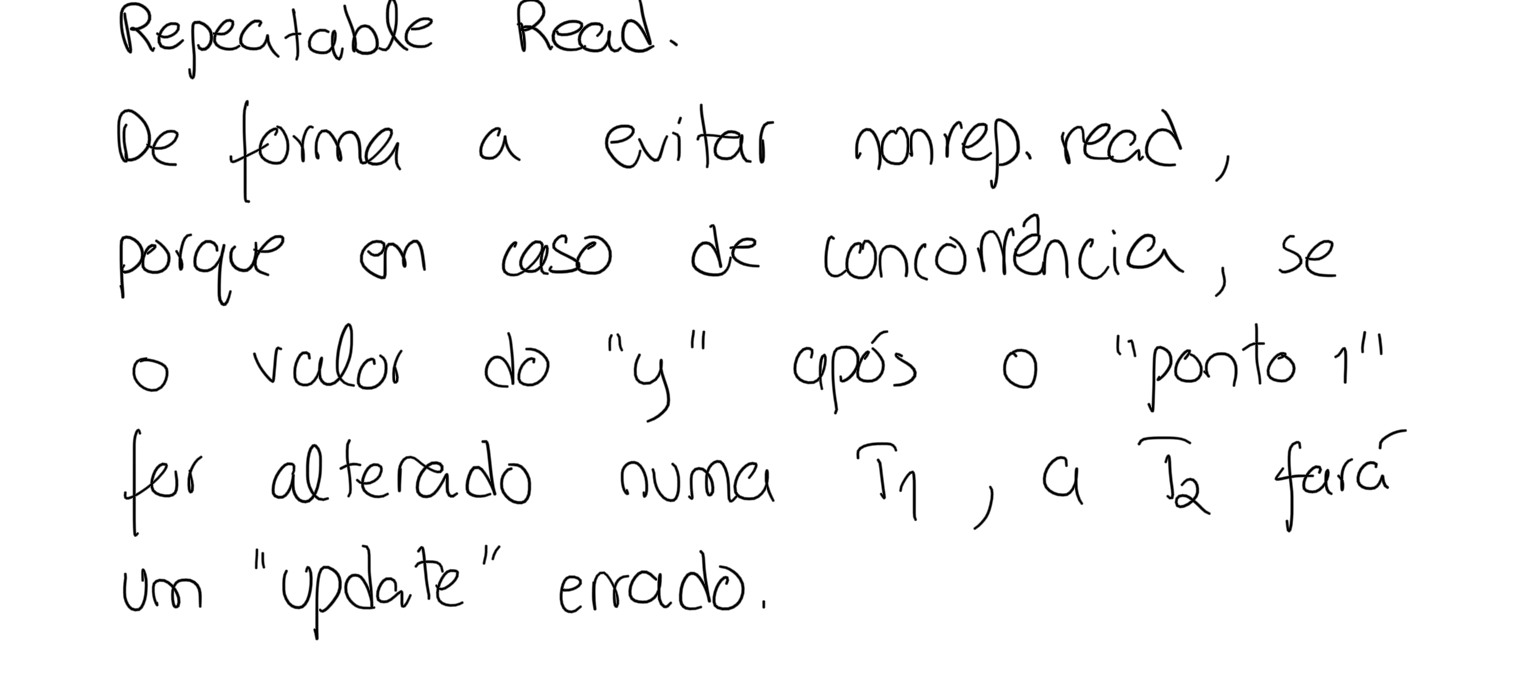 Repeatable Read.
De forma a evitar nonrep. read,
porque em caso de concorrência, se
o valor do "y" após o "ponto 1"
for alterado numa T1, a T2 fará
um "update" errado.